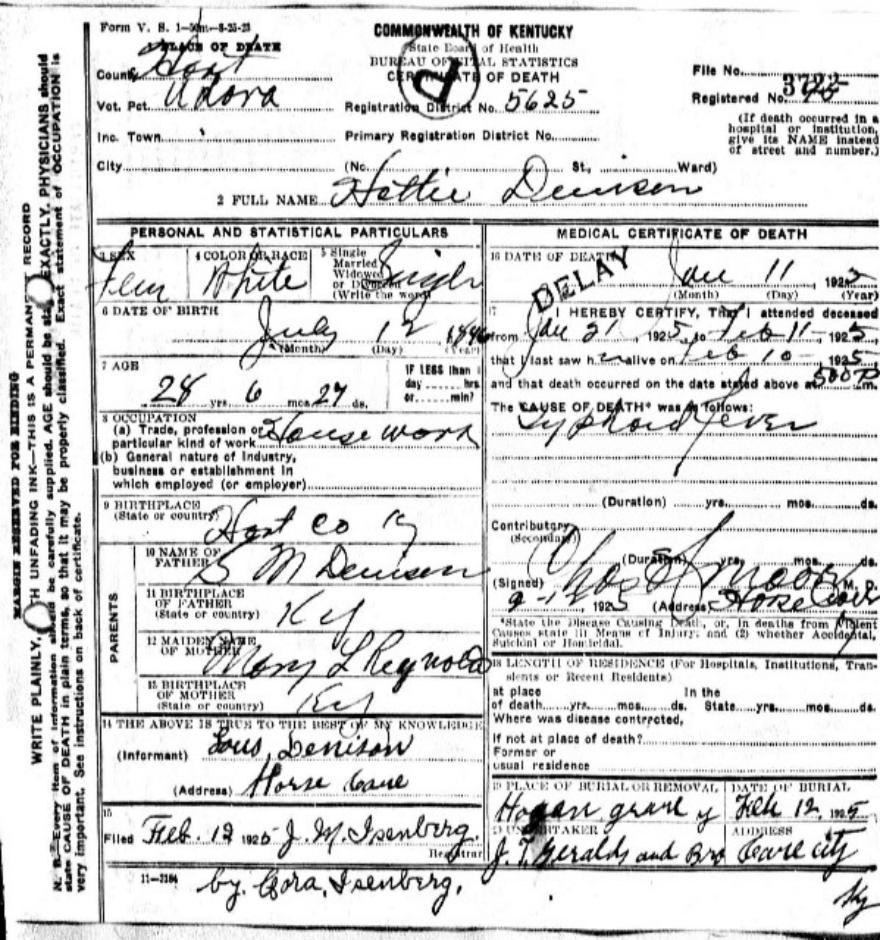 Form V. S. 1—50m—8-25-23
COMMONWEALTH OF KENTUCKY
State Board of Health
BUREAU OF VITAL STATISTICS
CERTIFICATE OF DEATH
PLACE OF DEATH
County Hart
Vot. Pct.
Inc. Town
City
Registration District No. 5625
Primary Registration District No.
(No. St., Ward)
File No.
Registered No.
(If death occurred in a
hospital or institution,
give its NAME instead
of street and number.)
D
2 FULL NAME Hettie Denison
PERSONAL AND STATISTICAL PARTICULARS
3 SEX Fem
4 COLOR OR RACE White
5 Single
Married
Widowed
or Divorced
(Write the word)
Single
6 DATE OF BIRTH
July 12
(Month) (Day) (Year)
7 AGE
28 yrs. 6 mos. 27 ds.
IF LESS than 1
day hrs.
or min?
8 OCCUPATION
(a) Trade, profession or
particular kind of work House work
(b) General nature of Industry,
business or establishment in
which employed (or employer)
9 BIRTHPLACE
(State or country) Hart Co Ky
PARENTS
10 NAME OF
FATHER S M Denison
11 BIRTHPLACE
OF FATHER
(State or country) Ky
12 MAIDEN NAME
OF MOTHER Mary L Reynolds
13 BIRTHPLACE
OF MOTHER
(State or country) Ky
14 THE ABOVE IS TRUE TO THE BEST OF MY KNOWLEDGE
(Informant) Denison
(Address) Horse Cave
15
Filed Feb. 12 1925 J. M. Isenberg.
Registrar
11—2184
by. Cora, Isenberg.
MEDICAL CERTIFICATE OF DEATH
16 DATE OF DEATH
DELAY
Jan 11 1925
(Month) (Day) (Year)
17 I HEREBY CERTIFY, That I attended deceased
from Jan 21, 1925, to Feb 11 1925
that I last saw h alive on Feb 10 1925
and that death occurred on the date stated above at m.
The CAUSE OF DEATH* was as follows:
Typhoid Fever
(Duration) yrs. mos. ds.
Contributory
(Secondary)
(Duration) yrs. mos. ds.
(Signed) Moore M. D.
1925 (Address) Horse Cave
Ky
*State the Disease Causing Death, or, in deaths from Violent
Causes state (1) Means of Injury; and (2) whether Accidental,
Suicidal or Homicidal.
18 LENGTH OF RESIDENCE (For Hospitals, Institutions, Tran-
sients or Recent Residents)
at place In the
of death yrs. mos. ds. State yrs. mos. ds.
Where was disease contracted,
If not at place of death?
Former or
usual residence
19 PLACE OF BURIAL OR REMOVAL
Hogan grave y
DATE OF BURIAL
Feb 12, 1925
20 UNDERTAKER
J. T. Geralds and Bro
ADDRESS
Cave city
Ky
MARGIN RESERVED FOR BINDING
WRITE PLAINLY, WITH UNFADING INK—THIS IS A PERMANENT RECORD
N. B.—Every item of information should be carefully supplied. AGE should be stated EXACTLY. PHYSICIANS should
state CAUSE OF DEATH in plain terms, so that it may be properly classified. Exact statement of OCCUPATION is
very important. See instructions on back of certificate.